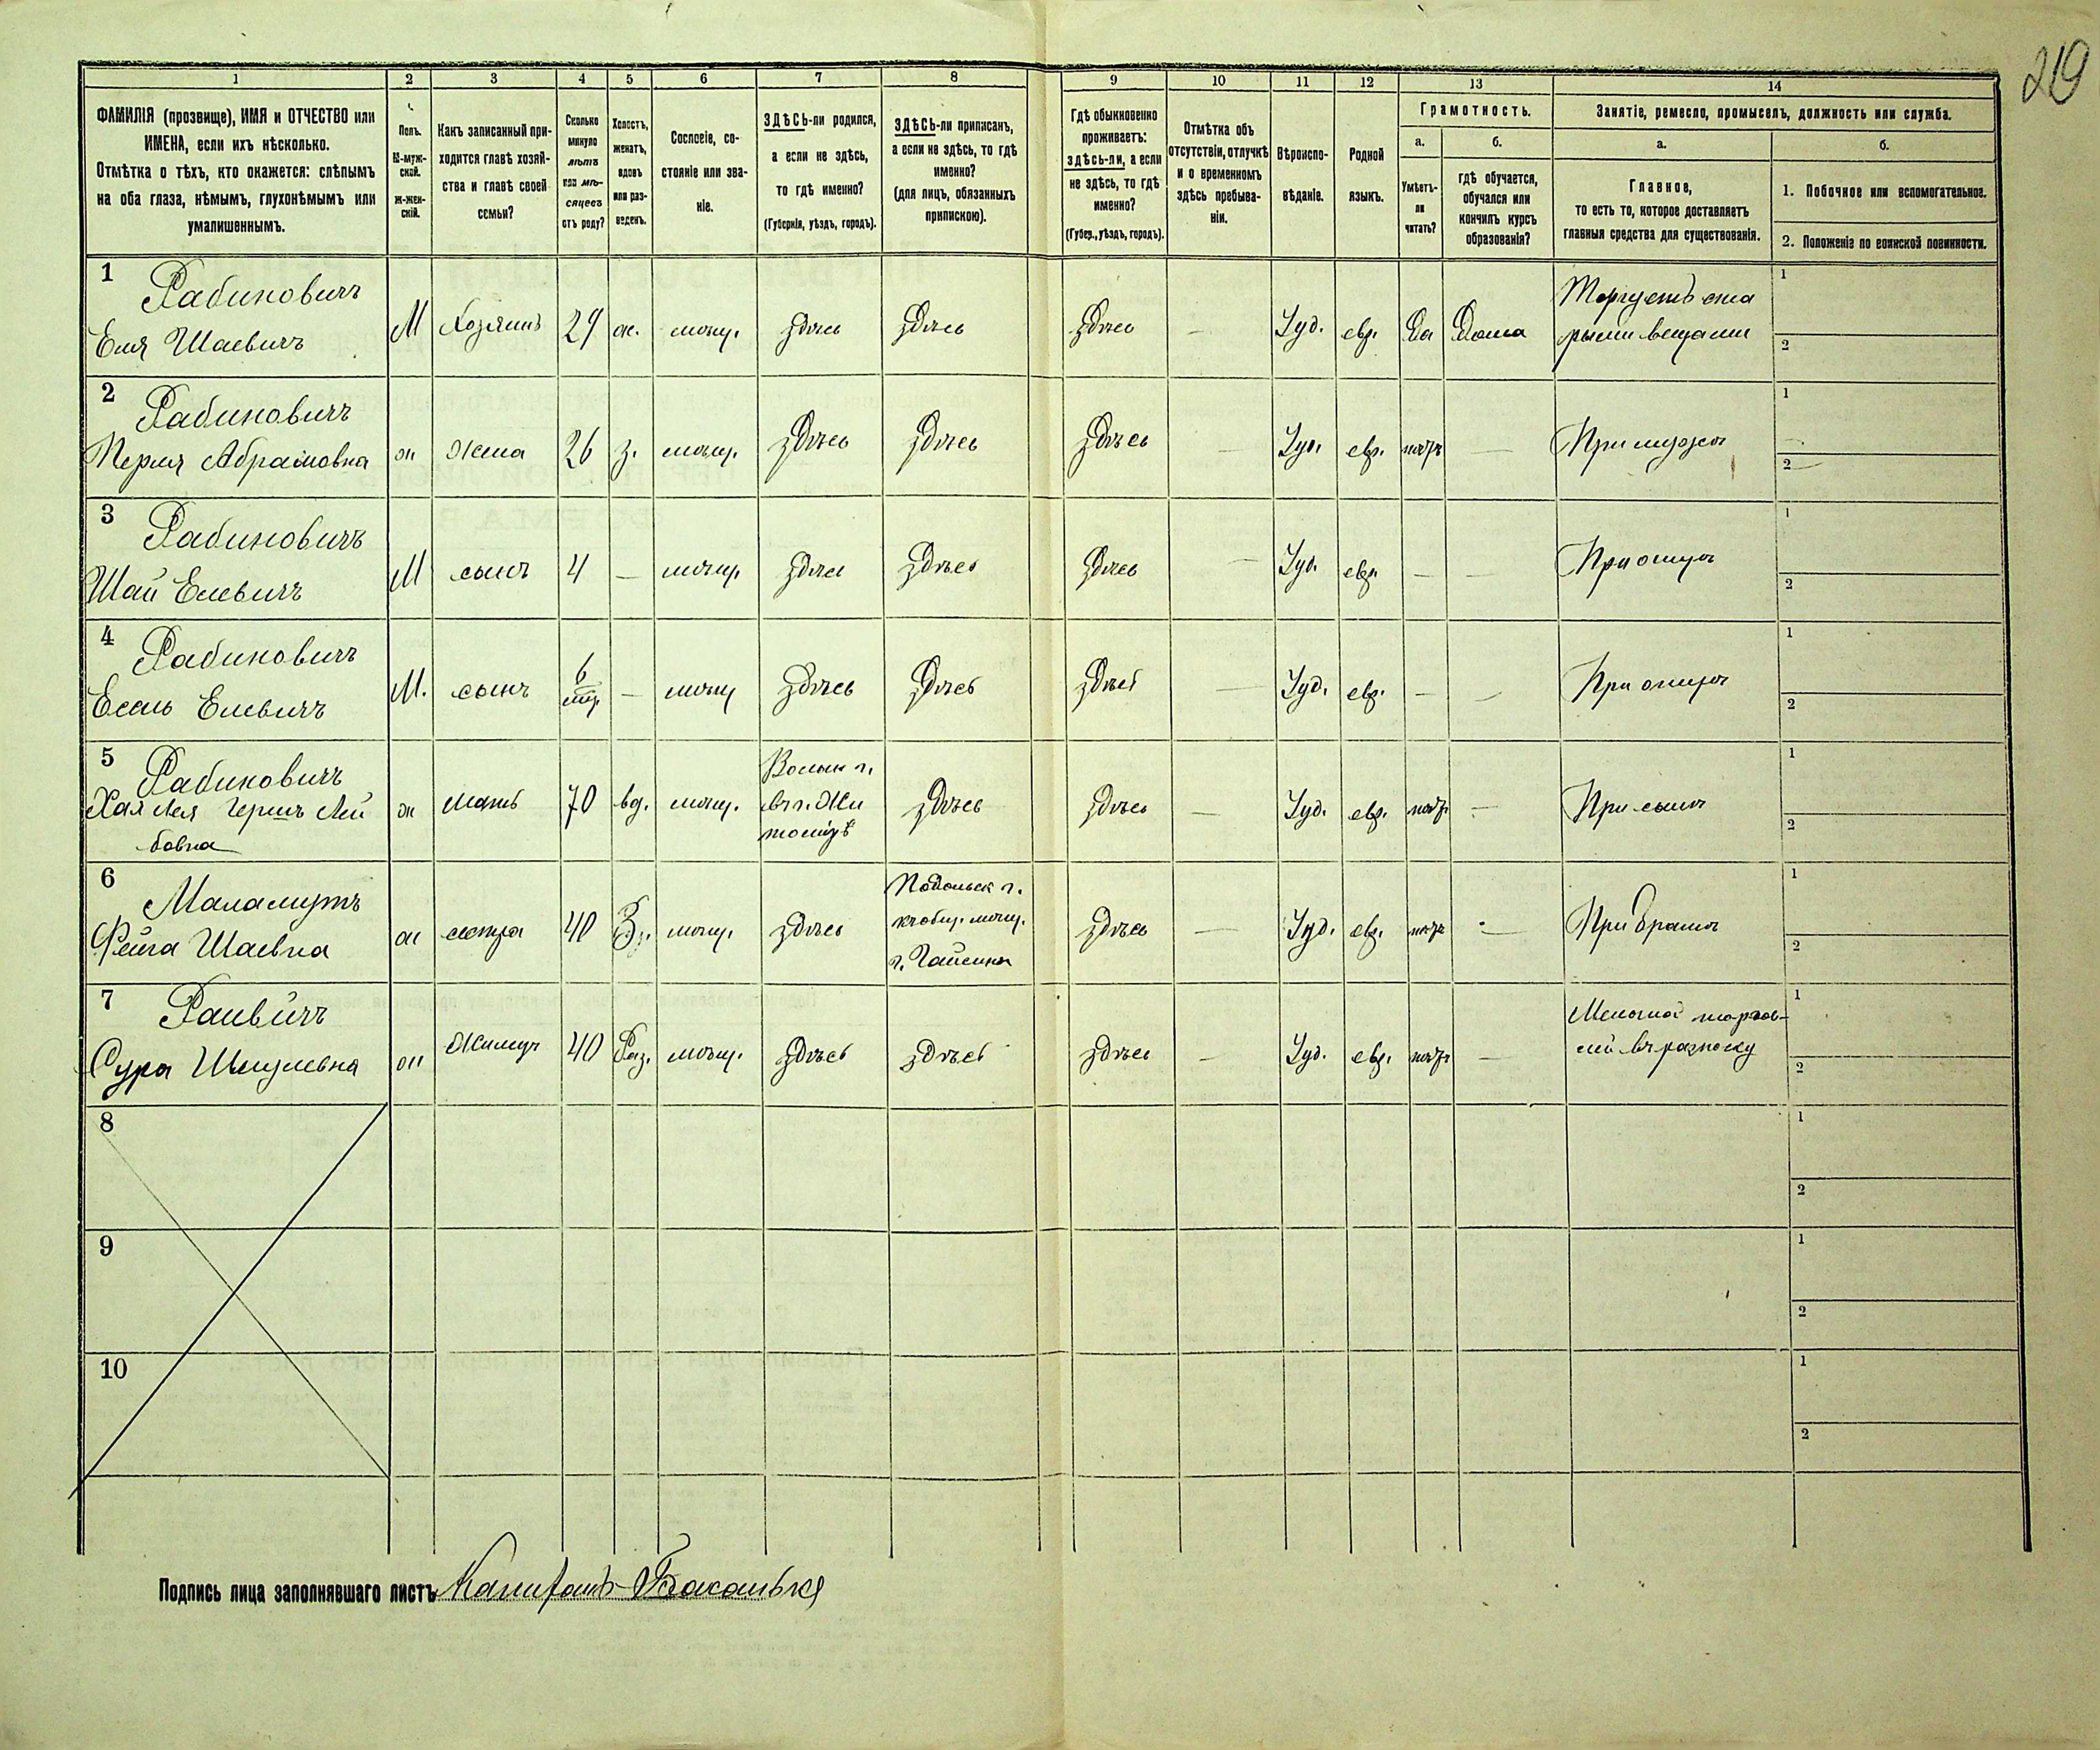 219
1 2 3 4 5 6 7 8 9 10 11 12 13 14
ФАМИЛІЯ (прозвище), ИМЯ и ОТЧЕСТВО или
ИМЕНА, если ихъ нѣсколько.
Отмѣтка о тѣхъ, кто окажется: слѣпымъ
на оба глаза, нѣмымъ, глухонѣмымъ или
умалишеннымъ.
Полъ.
М-муж-
ской.
Ж-жен-
скій.
Какъ записанный при-
ходится главѣ хозяй-
ства и главѣ своей
семьи?
Сколько
минуло
лѣтъ
или мѣ-
сяцевъ
отъ роду?
Холостъ,
женатъ,
вдовъ
или раз-
веденъ.
Сословіе, со-
стояніе или зва-
ніе.
ЗДѢСЬ-ли родился,
а если не здѣсь,
то гдѣ именно?
(Губернія, уѣздъ, городъ).
ЗДѢСЬ-ли приписанъ,
а если не здѣсь, то гдѣ
именно?
(для лицъ, обязанныхъ
припискою).
Гдѣ обыкновенно
проживаетъ:
здѣсь-ли, а если
не здѣсь, то гдѣ
именно?
(Губер., уѣздъ, городъ).
Отмѣтка объ
отсутствіи, отлучкѣ
и о временномъ
здѣсь пребыва-
ніи.
Вѣроиспо-
вѣданіе.
Родной
языкъ.
Грамотность.
а.
Умѣетъ-
ли
читать?
б.
гдѣ обучается,
обучался или
кончилъ курсъ
образованія?
Занятіе, ремесло, промыселъ, должность или служба.
а.
Главное,
то есть то, которое доставляетъ
главныя средства для существованія.
б.
1. Побочное или вспомогательное.
2. Положеніе по воинской повинности.
1 Рабиновичъ
Еля Шаевичъ М Хозяинъ 29 ж. мѣщ. здѣсь здѣсь здѣсь — Іуд. евр. Да Дома Торгуетъ ста
рыми вещами
1
2
2 Рабиновичъ
Перля Абрамовна ж Жена 26 з. мѣщ. здѣсь здѣсь здѣсь — Іуд. евр. нѣтъ — При мужѣ
1
2
3 Рабиновичъ
Шай Елевичъ М сынъ 4 — мѣщ. здѣсь здѣсь здѣсь — Іуд. евр. — — При отцѣ
1
2
4 Рабиновичъ
Есель Елевичъ М. сынъ 6 — мѣщ здѣсь здѣсь здѣсь — Іуд. евр. — — При отцѣ
1
2
5 Рабиновичъ
Хая Лея Гершъ Лей
бовна ж Мать 70 вд. мѣщ. Волын г.
въ г. Жи
томірѣ здѣсь здѣсь — Іуд. евр. нѣтъ — При сынѣ
1
2
6 Маламутъ
Фейга Шаевна ж сестра 40 З. мѣщ. здѣсь Подольск г.
къ общ. мѣщ.
г. Гайсина здѣсь — Іуд. евр. нѣтъ — При братѣ
1
2
7 Раквичъ
Сура Шмулевна ж Жилиц 40 Раз. мѣщ. здѣсь здѣсь здѣсь — Іуд. евр. нѣтъ — Мелочной торгов-
лей въ разноску
1
2
8
1
2
9
1
2
10
1
2
Подпись лица заполнявшаго листъ